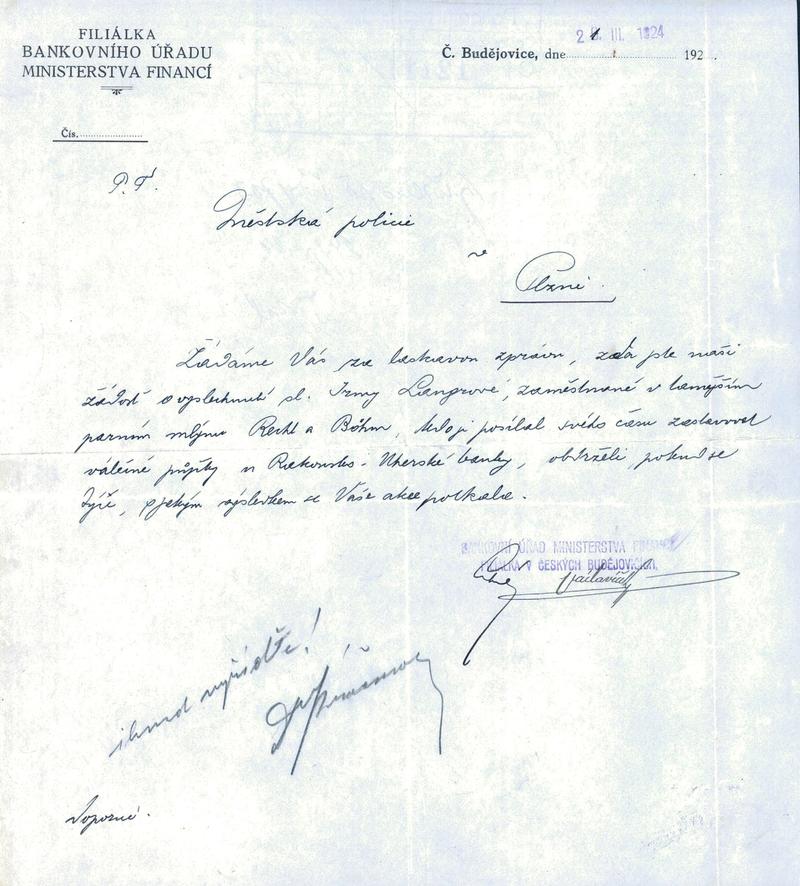 FILIÁLKA
BANKOVNÍHO ÚŘADU
MINISTERSTVA FINANCÍ
Č. Budějovice, dne III. 1924 192
Čís.
P. T.
Městská policie
v
Plzni.
Žádáme Vás za laskavou zprávu, zda jste naši
žádost o vyslechnutí sl. Irmy Langrové, zaměstnané v tamějším
parním mlýnu Recht a Böhm, kdo ji posílal svého času zastavovat
válečné půjčky u Rakousko-Uherské banky, obdrželi, pokud se
týče, s jakým výsledkem se Vaše akce potkala.
BANKOVNÍ ÚŘAD MINISTERSTVA FINANCÍ
FILIÁLKA V ČESKÝCH BUDĚJOVICÍCH.
ihned vyřiďte!